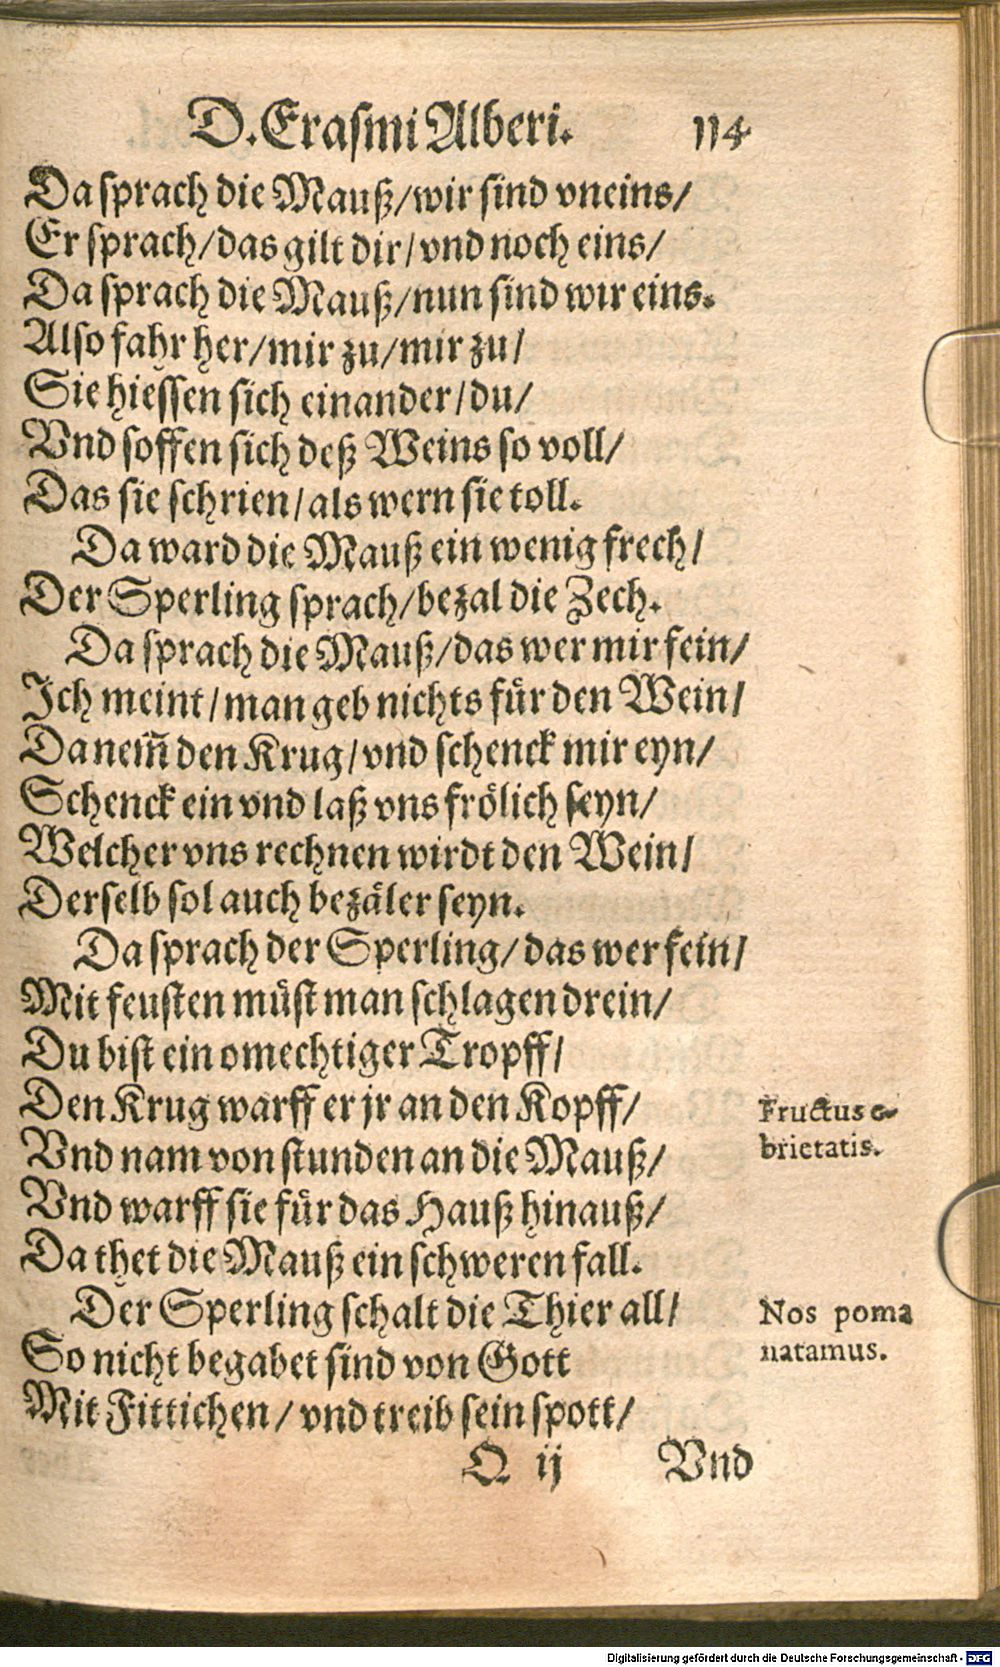 D. Erasmi Alberi. 114
Da sprach die Mauß/wir sind vneins/
Er sprach/das gilt dir/vnd noch eins/
Da sprach die Mauß/nun sind wir eins.
Also fahr her/mir zu/mir zu/
Sie hiessen sich einander/du/
Vnd soffen sich deß Weins so voll/
Das sie schrien/als wern sie toll.
Da ward die Mauß ein wenig frech/
Der Sperling sprach/bezal die Zech.
Da sprach die Mauß/das wer mir fein/
Ich meint/man geb nichts für den Wein/
Da nem̃ den Krug/vnd schenck mir eyn/
Schenck ein vnd laß vns frölich seyn/
Welcher vns rechnen wirdt den Wein/
Derselb sol auch bezäler seyn.
Da sprach der Sperling/das wer fein/
Mit feusten müst man schlagen drein/
Du bist ein omechtiger Tropff/
Den Krug warff er jr an den Kopff/
Fructus e-
Vnd nam von stunden an die Mauß/
brietatis.
Vnd warff sie für das Hauß hinauß/
Da thet die Mauß ein schweren fall.
Der Sperling schalt die Thier all/
Nos poma
So nicht begabet sind von Gott
natamus.
Mit Fittichen/vnd treib sein spott/
Q ij Vnd
Digitalisierung gefördert durch die Deutsche Forschungsgemeinschaft - DFG